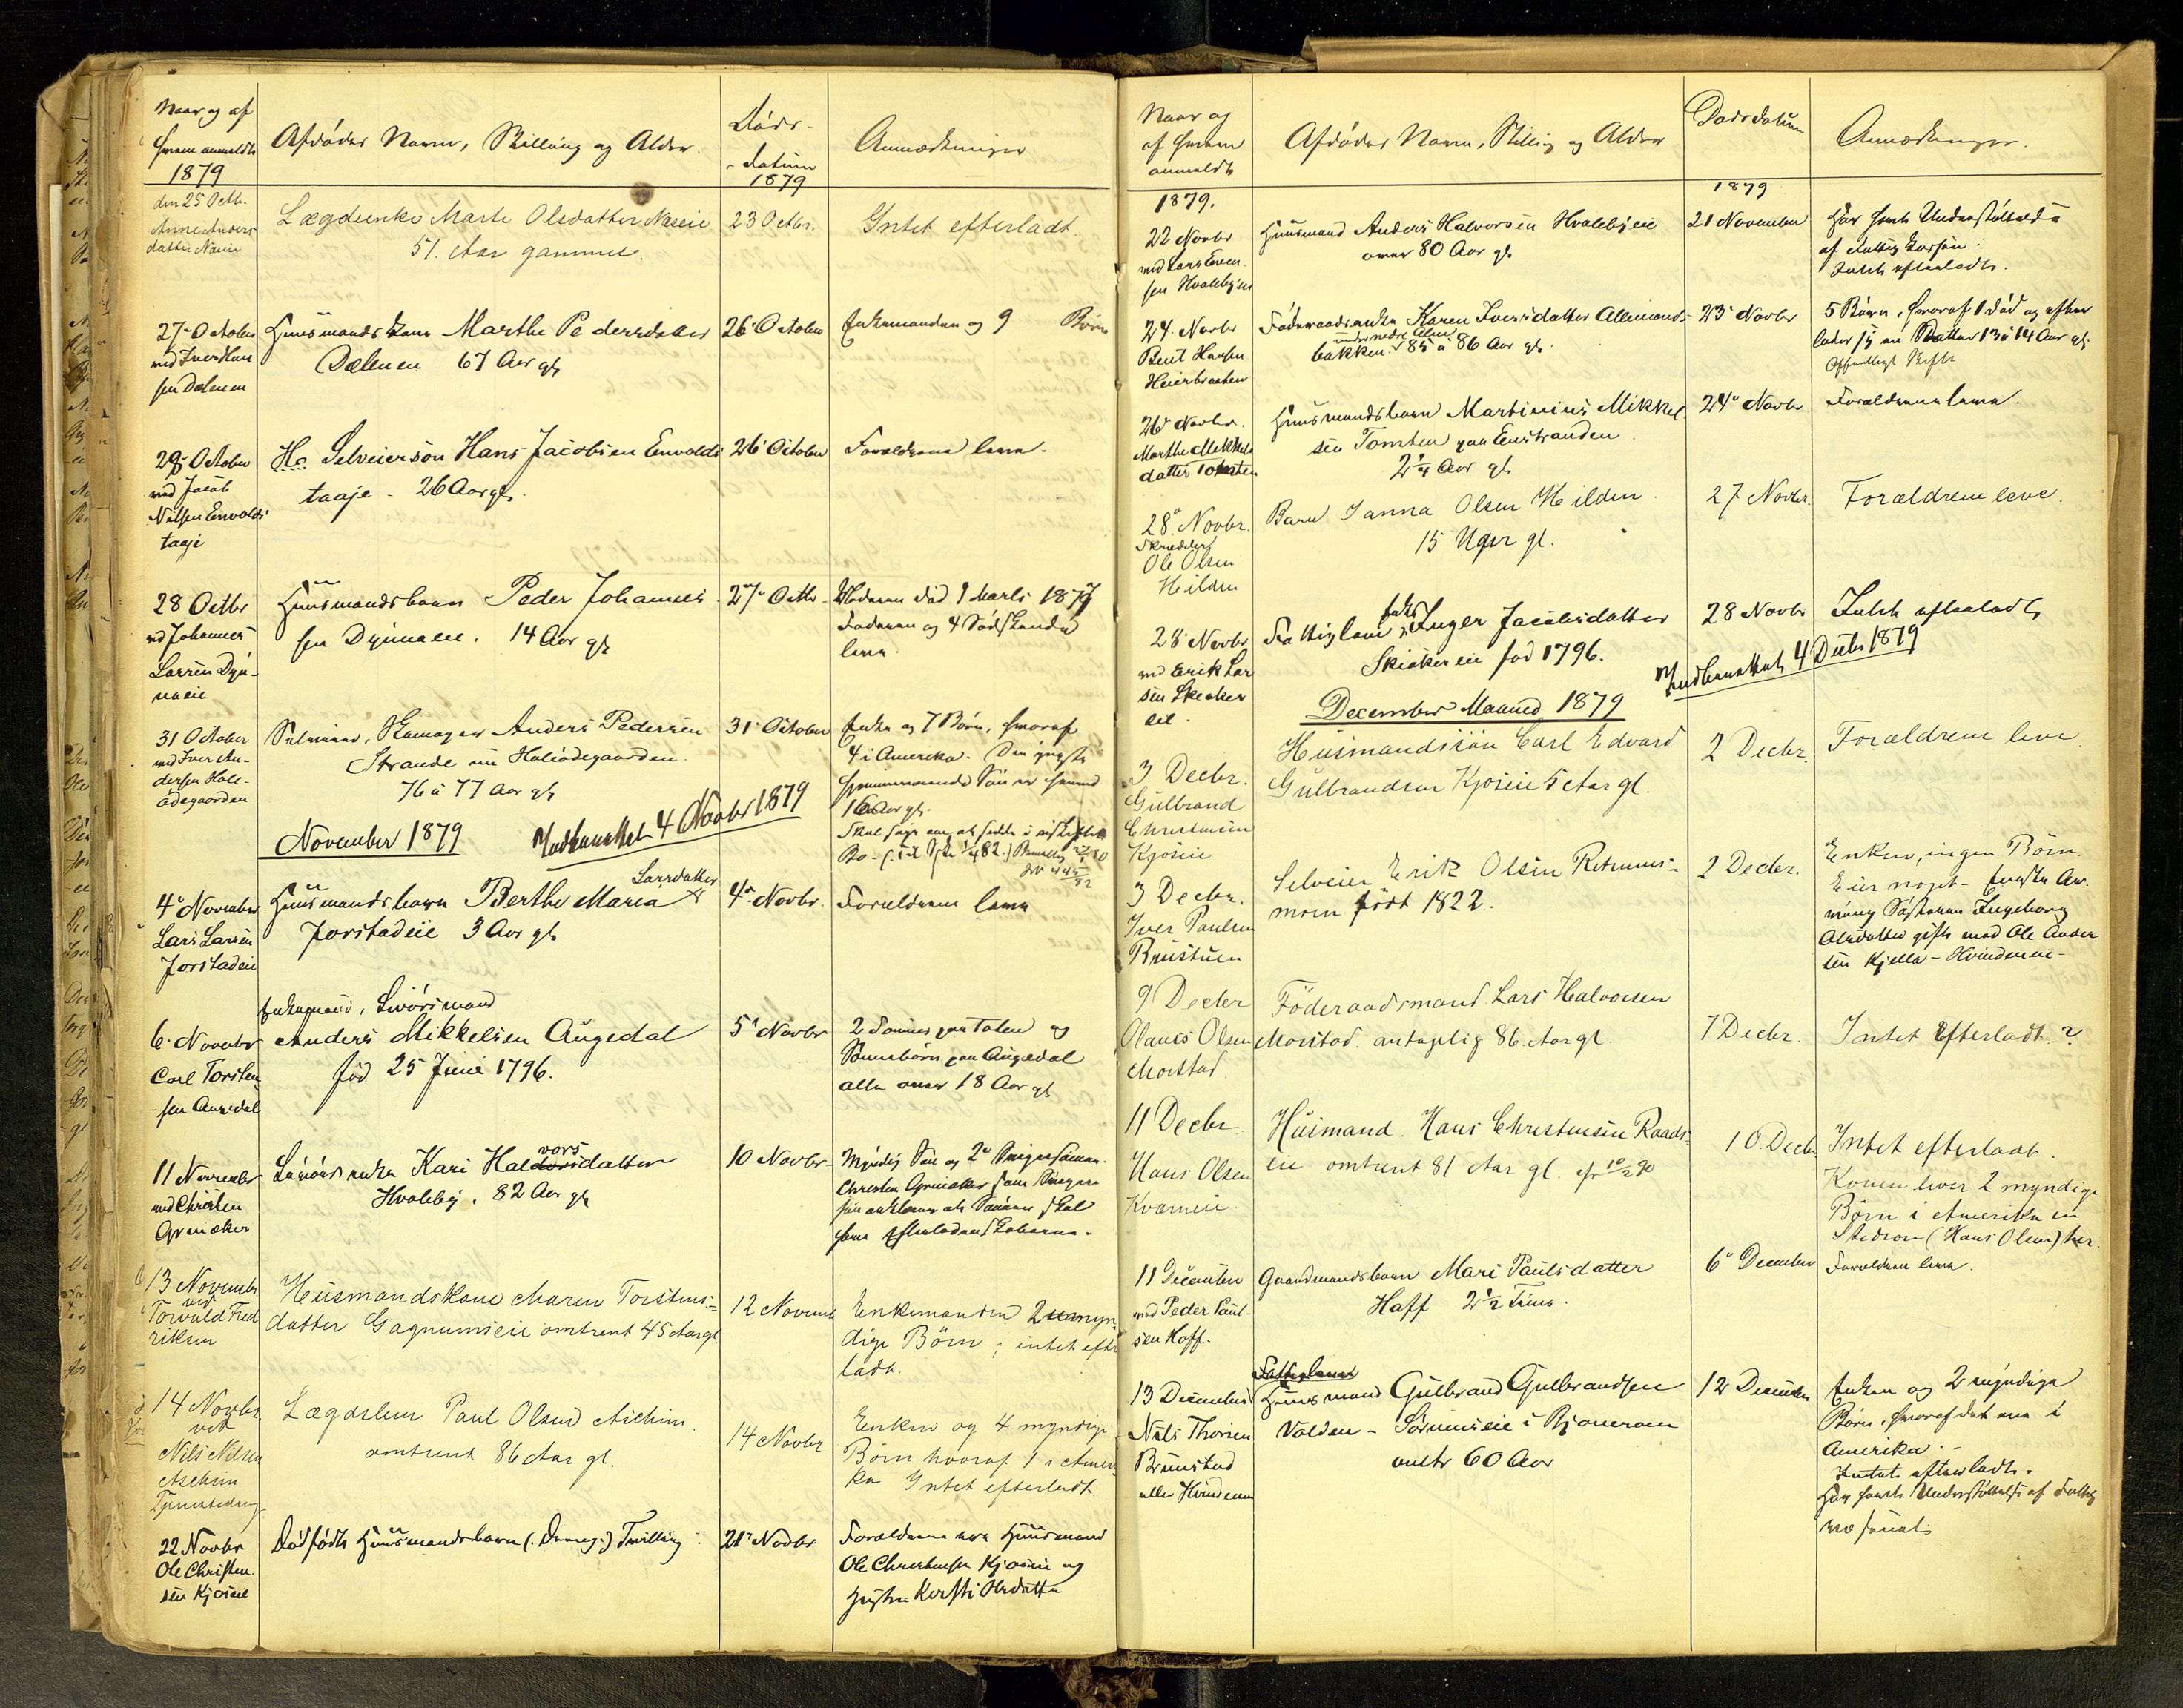 Naar og af
hvem anmeldt
1879
Afdødes Navn, Stilling og Alder.
Døds-
datum
1879
Anmærkninger
den 25 Octb.
Anne Anders
datter Næseie
Lægdsenke Marte Olsdatter Næseie
51. Aar gammel.
23 Octbr.
Intet efterladt
27 October
ved Iver Han
sen Dælenen
Huusmandskone Marthe Pedersdatter
Dælenen 67 Aar gl
26 October
Enkemanden og 9 Børn
29 October
ved Jacob
Nilsen Envolds
taaje
Selveiersøn Hans Jacobsen Envolds
taaje - 26 Aar gl.
26 October
Forældrene leve.
28 Octbr
vd Johannes
Larsen Dyn-
naeie
Huusmandsbarn Peder Johannes
sen Dynnaeie. 14 Aar gl
27 Octbr
Moderen død 9 Marts 1877
Faderen og 4 Sødskende
leve.
31 October
ved Iver An-
dersen Hole-
ødegaarden
Selveier, Skomager Anders Pedersen
Strande nu Holeødegaarden.
76 à 77 Aar gl
31 October
Enke og 7 Børn, hvoraf
4 i Amerika. Den yngste
hjemmeværende Søn er
16 Aar gl.
November 1879
Indberettet 4 Novbr 1879
4 November
Lars Larsen
Jorstadeie
Huusmandsbarn Berthe Maria Larsdatter
Jorstadeie 3 Aar gl
4 Novbr.
Forældrene leve
6. Novebr
Carl Torsten
sen Augedal
Enkemand, Livørsmand
Anders Mikkelsen Augedal
fød 25 Juni 1796.
5 Novbr
2 Sønner paa Toten og
Sønnebørn paa Augedal
alle over 18 Aar gl
11 November
ved Christen
Grinaker
Livørs enke Kari Halvorsdatter
Hvaleby. 82 Aar gl
10 Novbr
Myndig Søn og 2
Christen Grinaker som
13 Novembr
ved
Torvald Fred
riksen
Husmandskone Maren Torstens-
datter Gagnumseie omtrent 45 Aar gl.
12 Novemb
Enkemanden 2 umyn
dige Børn; intet efter
ladt.
14 Novbr
ved
Nils Nilsen
Aschim
Lægdslem Paul Olsen Aschim.
omtrent 86 Aar gl.
14 Novbr
Enken og 4 myndige
Børn hvoraf 1 i Ameri
ka Intet efterladt.
22 Novbr
Ole Christen
sen Kjoseie
Dødfødt Huusmandsbarn (Dreng) Tvilling
21 Novbr
Forældrene ere Huusmand
Ole Christensen Kjoseie og
hustru Kersti Olsdatter
Naar og
af hvem
anmeldt
1879.
Afdødes Navn, Stilling og Alder
Dødsdatum
1879
Anmærkninger.
22 Novbr
ved Lars Even
sen Hvalebyeie
Huusmand Anders Halvorsen Hvalebyeie
over 80 Aar gl.
21 November
Har havt Understøttelse
af Fattig kassen.
Intet efterladt.
24. Novbr
Bent Hansen
Heierbraaten
Føderaadsenke Karen Iversdatter Allemands-
bakken 85 à 86 Aar gl.
23 Novbr
5 Børn, hvoraf 1 død og efter
lader sig en Datter 13 à 14 Aar gl.
Offentligt Skifte
26 Novbr.
Marthe Mikkels
datter Tomten
Huusmandsbarn Martinius Mikkel
sen Tomten paa Enstranden
2¼ Aar gl
24 Novbr
Forældrene leve.
28. Novbr.
Skrædder
Ole Olsen
Hilden
Barn Janna Olsen Hilden.
15 Uger gl.
27 Novbr.
Forældrene leve.
28 Novbr
ved Erik Lar
sen Skiaker
eie.
Fattiglem Enke Inger Jacobsdatter
Skiakereie fød 1796.
28 Novbr
Intet efterladt
Indberettet 4 Decbr 1879
December Maaned 1879
3 Decbr.
Gulbrand
Christensen
Kjoseie
Husmandssøn Carl Edvard
Gulbrandsen Kjoseie 5 Aar gl.
2 Decbr.
Forældrene leve
3 Decbr.
Iver Paulsen
Brustuen
Selveier Erik Olsen Retrums-
moen født 1822.
2 Decbr.
Enken, ingen Børn.
Eier noget - Eneste Ar-
ving Søsteren Ingeborg
Olsdatter gift med Ole Ander
sen Kjella - Hvindeneie -
9 Decbr
Olaus Olsen
Morstad.
Föderaadsmand Lars Halvorsen
Morstad. antagelig 86. Aar gl.
7 Decbr.
Intet Efterladt.?
11 Decbr
Hans Olsen
Kværneie.
Husmand. Hans Christensen Raads
eie omtrent 81 Aar gl.
10. Decb
Intet efterladt.
Konen lever 2 myndige
Børn i Amerika en
Stedsøn (Hans Olsen) her.
11 December
ved Peder Paul-
sen Hoff.
Gaardmandsbarn Mari Paulsdatter
Haff 2½ Time.
6 December
Forældrene leve.
13 December
Nils Thorsen
Brunstad
eller Hvindeneie
Fattiglem
Huusmand Gulbrand Gulbrandsen
Volden - Sørumseie i Bjoneroa
omtr 60 Aar
12 December
Enken og 2 myndige
Børn, hvoraf det ene i
Amerika. -
Intet efterladt.
Har havt Understøttelse af Fattig
væsenet